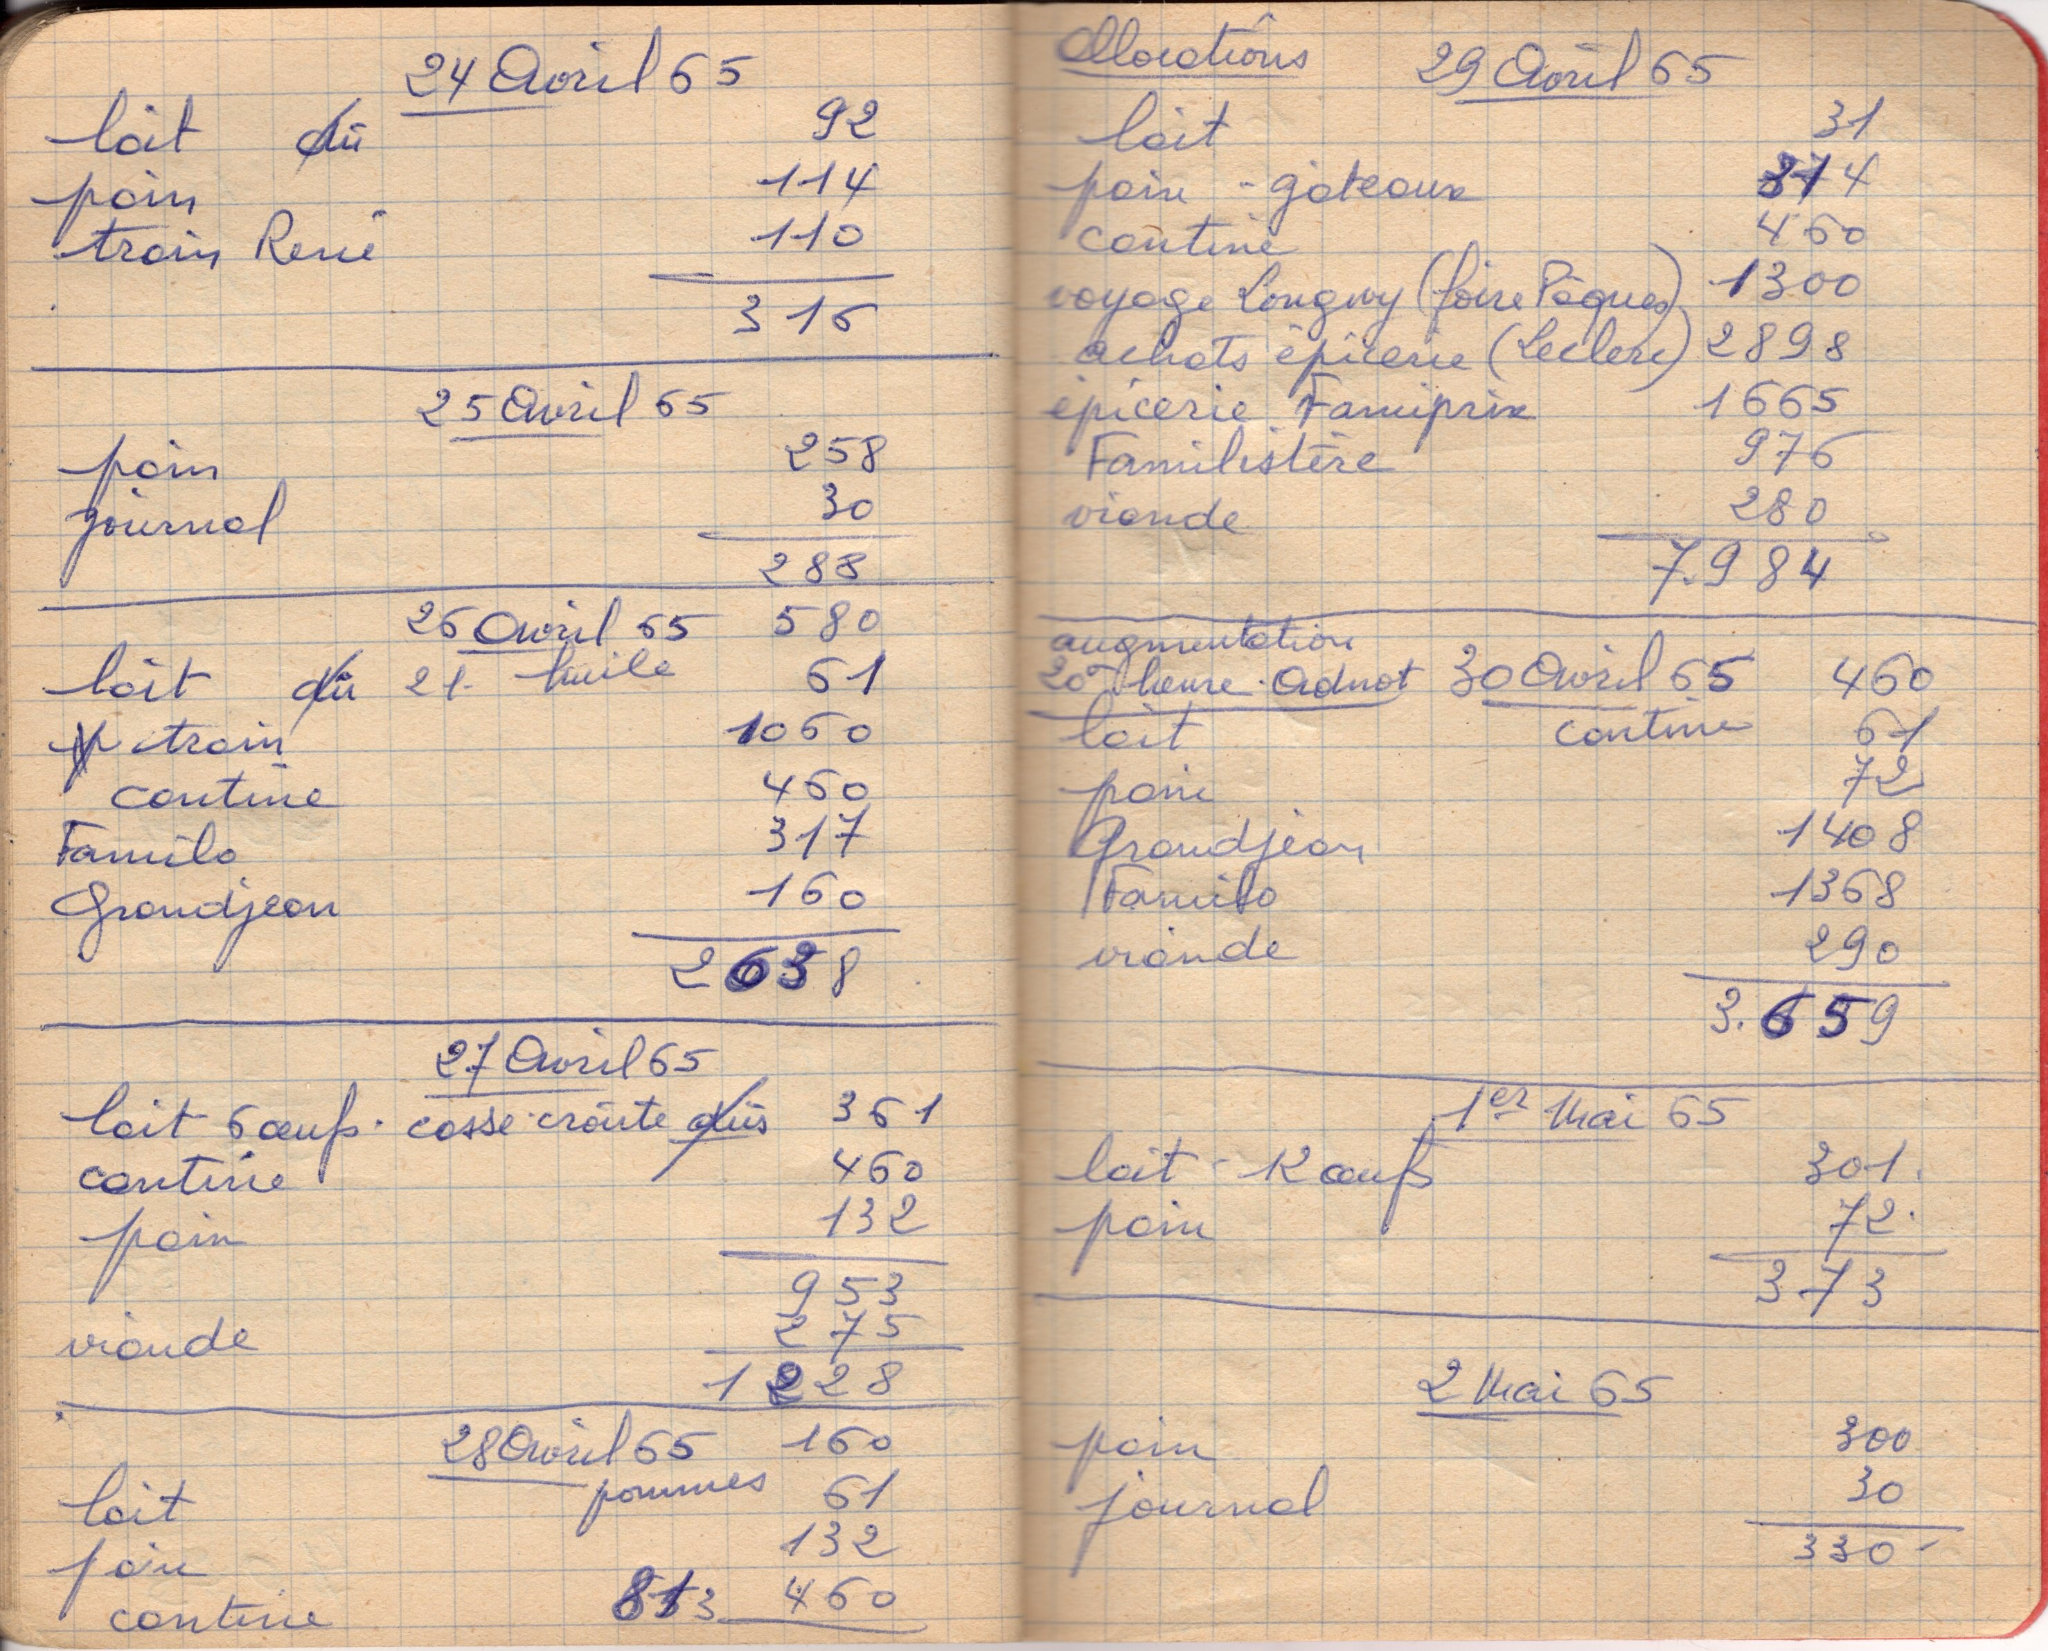 24 Avril 65
lait dû 92
pain 114
train René 110
316
25 Avril 65
pain 258
journal 30
288
26 Avril 65 580
lait dû 21. huile 61
train 1060
cantine 460
Familo 317
Grandjean 160
2638
27 Avril 65
lait 6 œufs. casse-croûte dûs 361
cantine 460
pain 132
953
viande 275
1228
28 Avril 65 160
pommes
lait 61
pain 132
cantine 813 460
Allocations 29 Avril 65
lait 31
pain - gâteaux 374
cantine 460
voyage Longwy (foire Pâques) 1300
achats épicerie (Leclerc) 2898
épicerie Famiprix 1665
Familistère 976
viande 280
7.984
augmentation
20F heure. Adnot 30 Avril 65 460
cantine
lait 61
pain 72
Grandjean 1408
Familo 1368
viande 290
3.659
1er Mai 65
lait - 12 œufs 301.
pain 72.
373
2 Mai 65
pain 300
journal 30
330 -